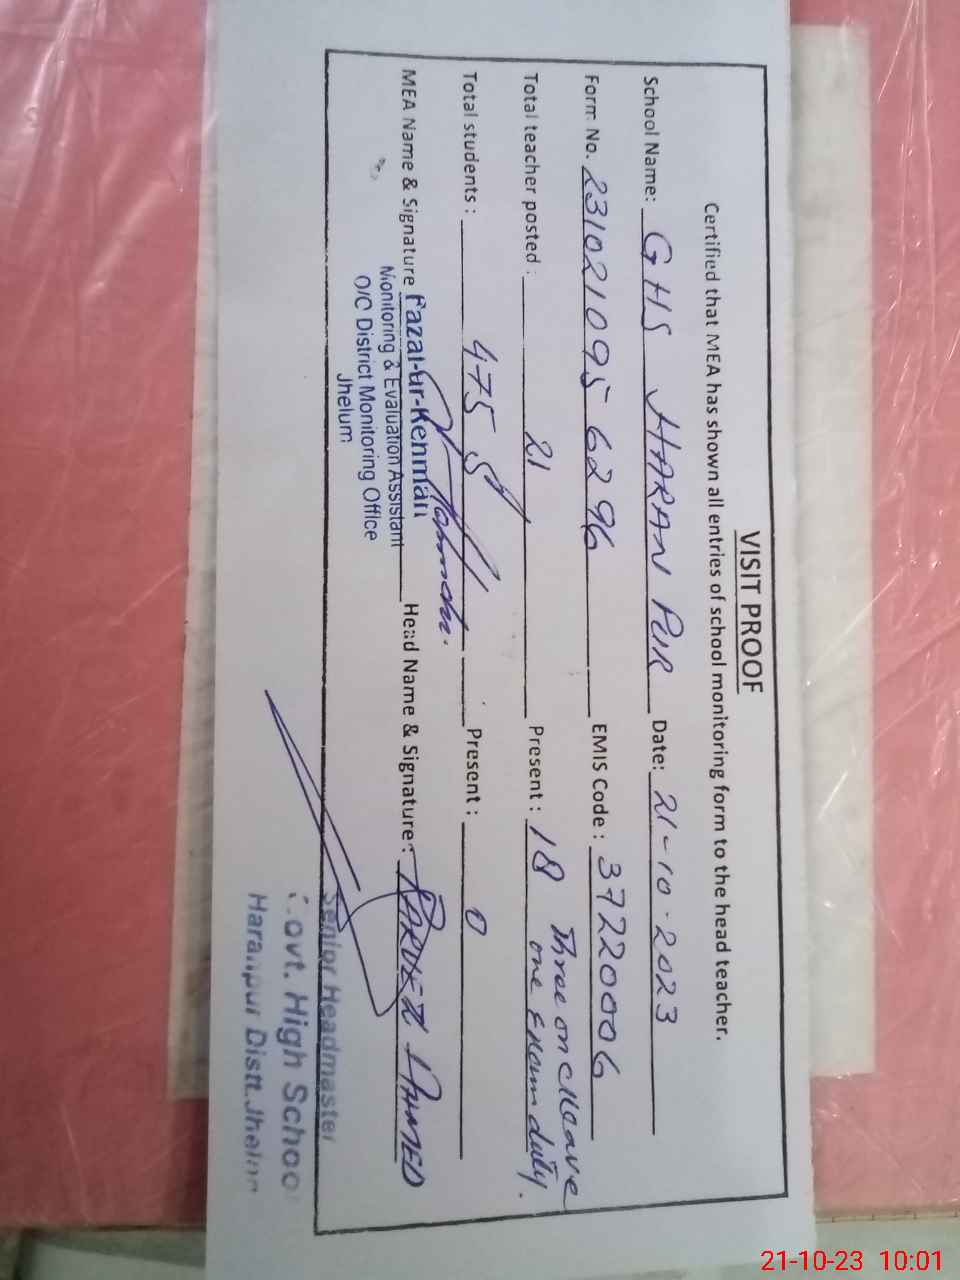 VISIT PROOF
Certified that MEA has shown all entries of school monitoring form to the head teacher.
School Name: GHS HARAN PUR Date: 21-10-2023
Form No. 2310210956296 EMIS Code: 37220006
Total teacher posted: 21 Present: 18 Three on cleave
one Exam duty.
Total students: 475 Present: 0
MEA Name & Signature Fazal-ur-Rehman Head Name & Signature: PARVEZ AHMED
Monitoring & Evaluation Assistant
O/C District Monitoring Office
Jhelum
Senior Headmaster
Govt. High School
Haranpur Distt. Jhelum
21-10-23 10:01